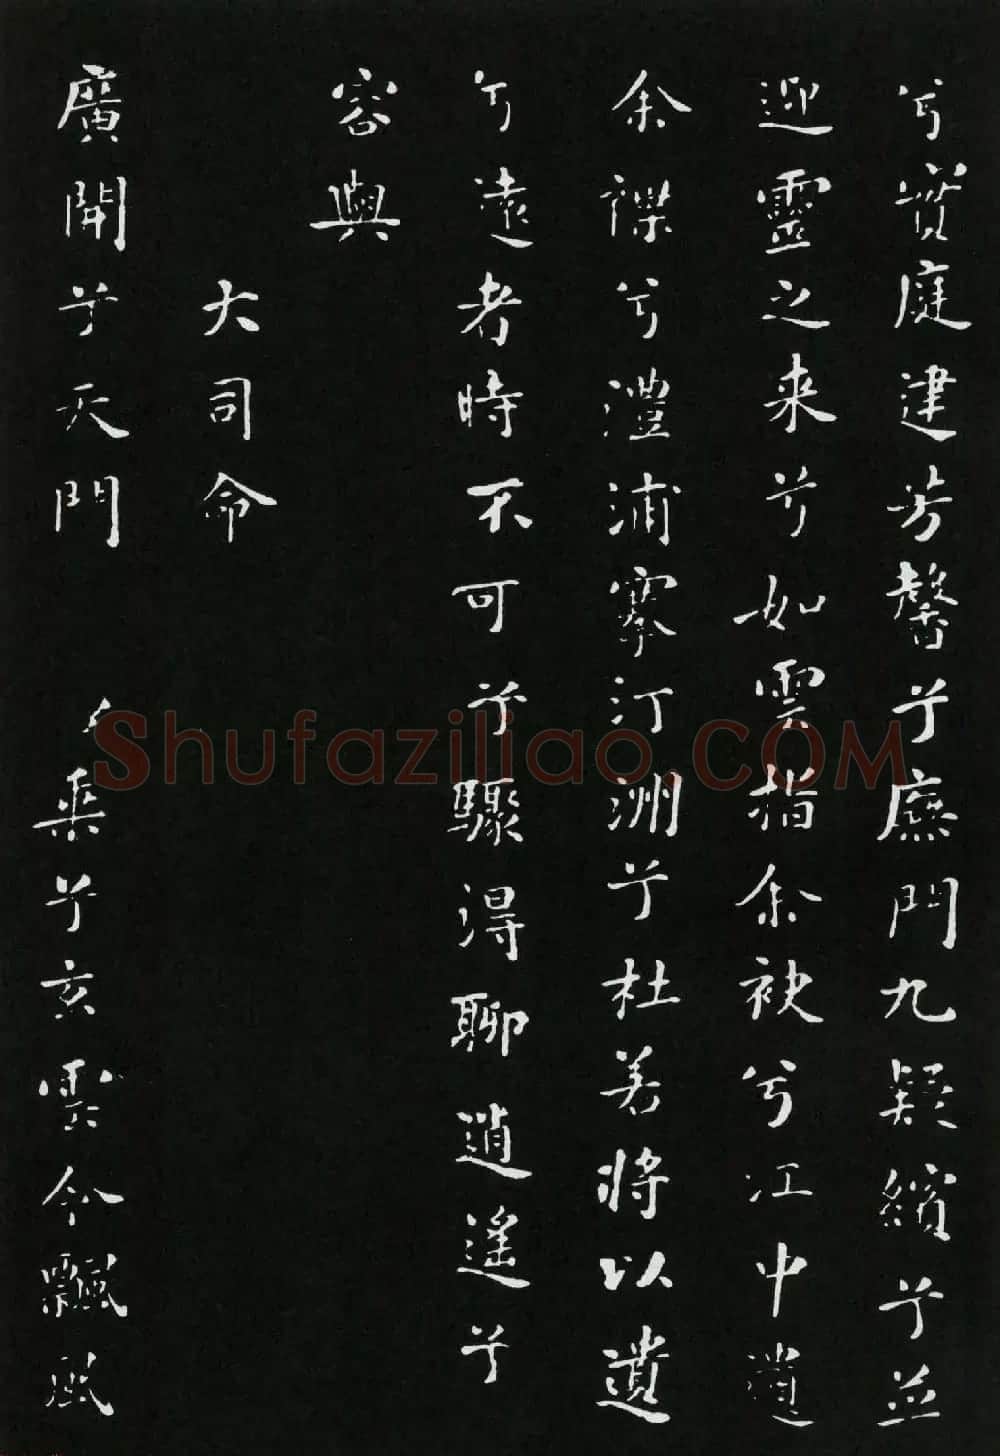 兮實庭建芳馨兮廡門九疑繽兮並
迎靈之来兮如雲指余袂兮江中遺
余褋兮澧浦搴汀洲兮杜若將以遺
兮遠者時不可兮驟得聊逍遙兮
容與
大司命
廣開兮天門 乘兮玄雲令飄風
Shufaziliao.COM